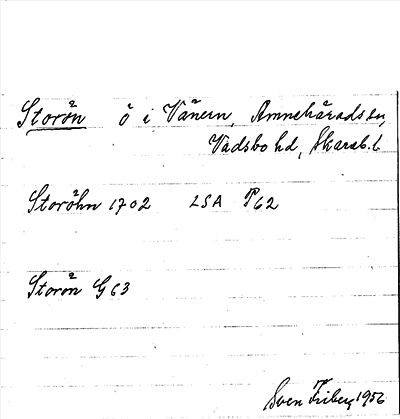 Storön ö i Vänern, Amnehärads sn,
Vadsbo hd, Skarab. l
Storöhn 1702 LSA P62
Storön G63
Sven Friberg 1956